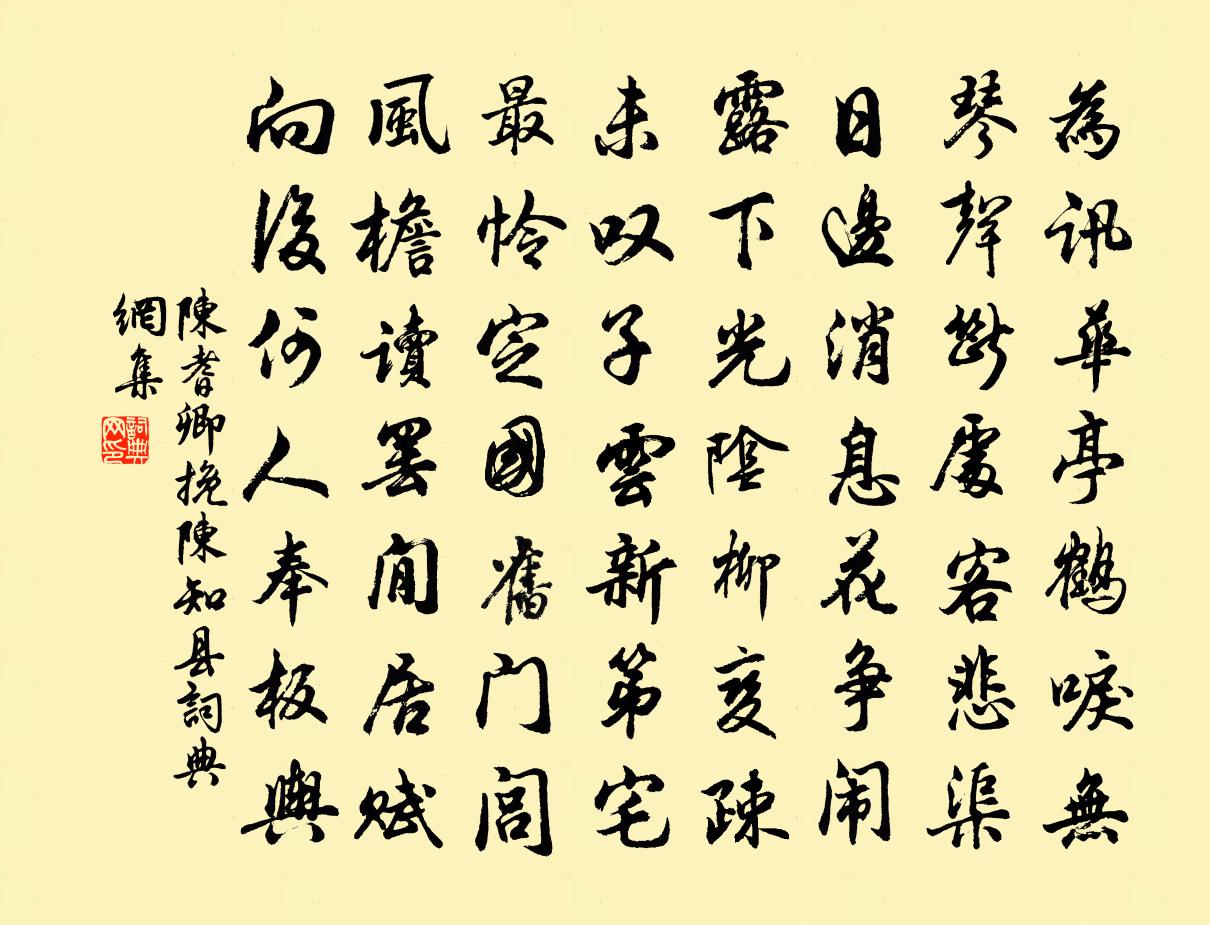 為訊華亭鶴唳無
琴聲斷處客悲渠
日邊消息花争闹
露下光陰柳变疎
未叹子雲新第宅
最怜定國舊门闾
風檐讀罢閒居赋
向後何人奉板輿
陳耆卿挽陳知县詞典
網集
詞典
网印